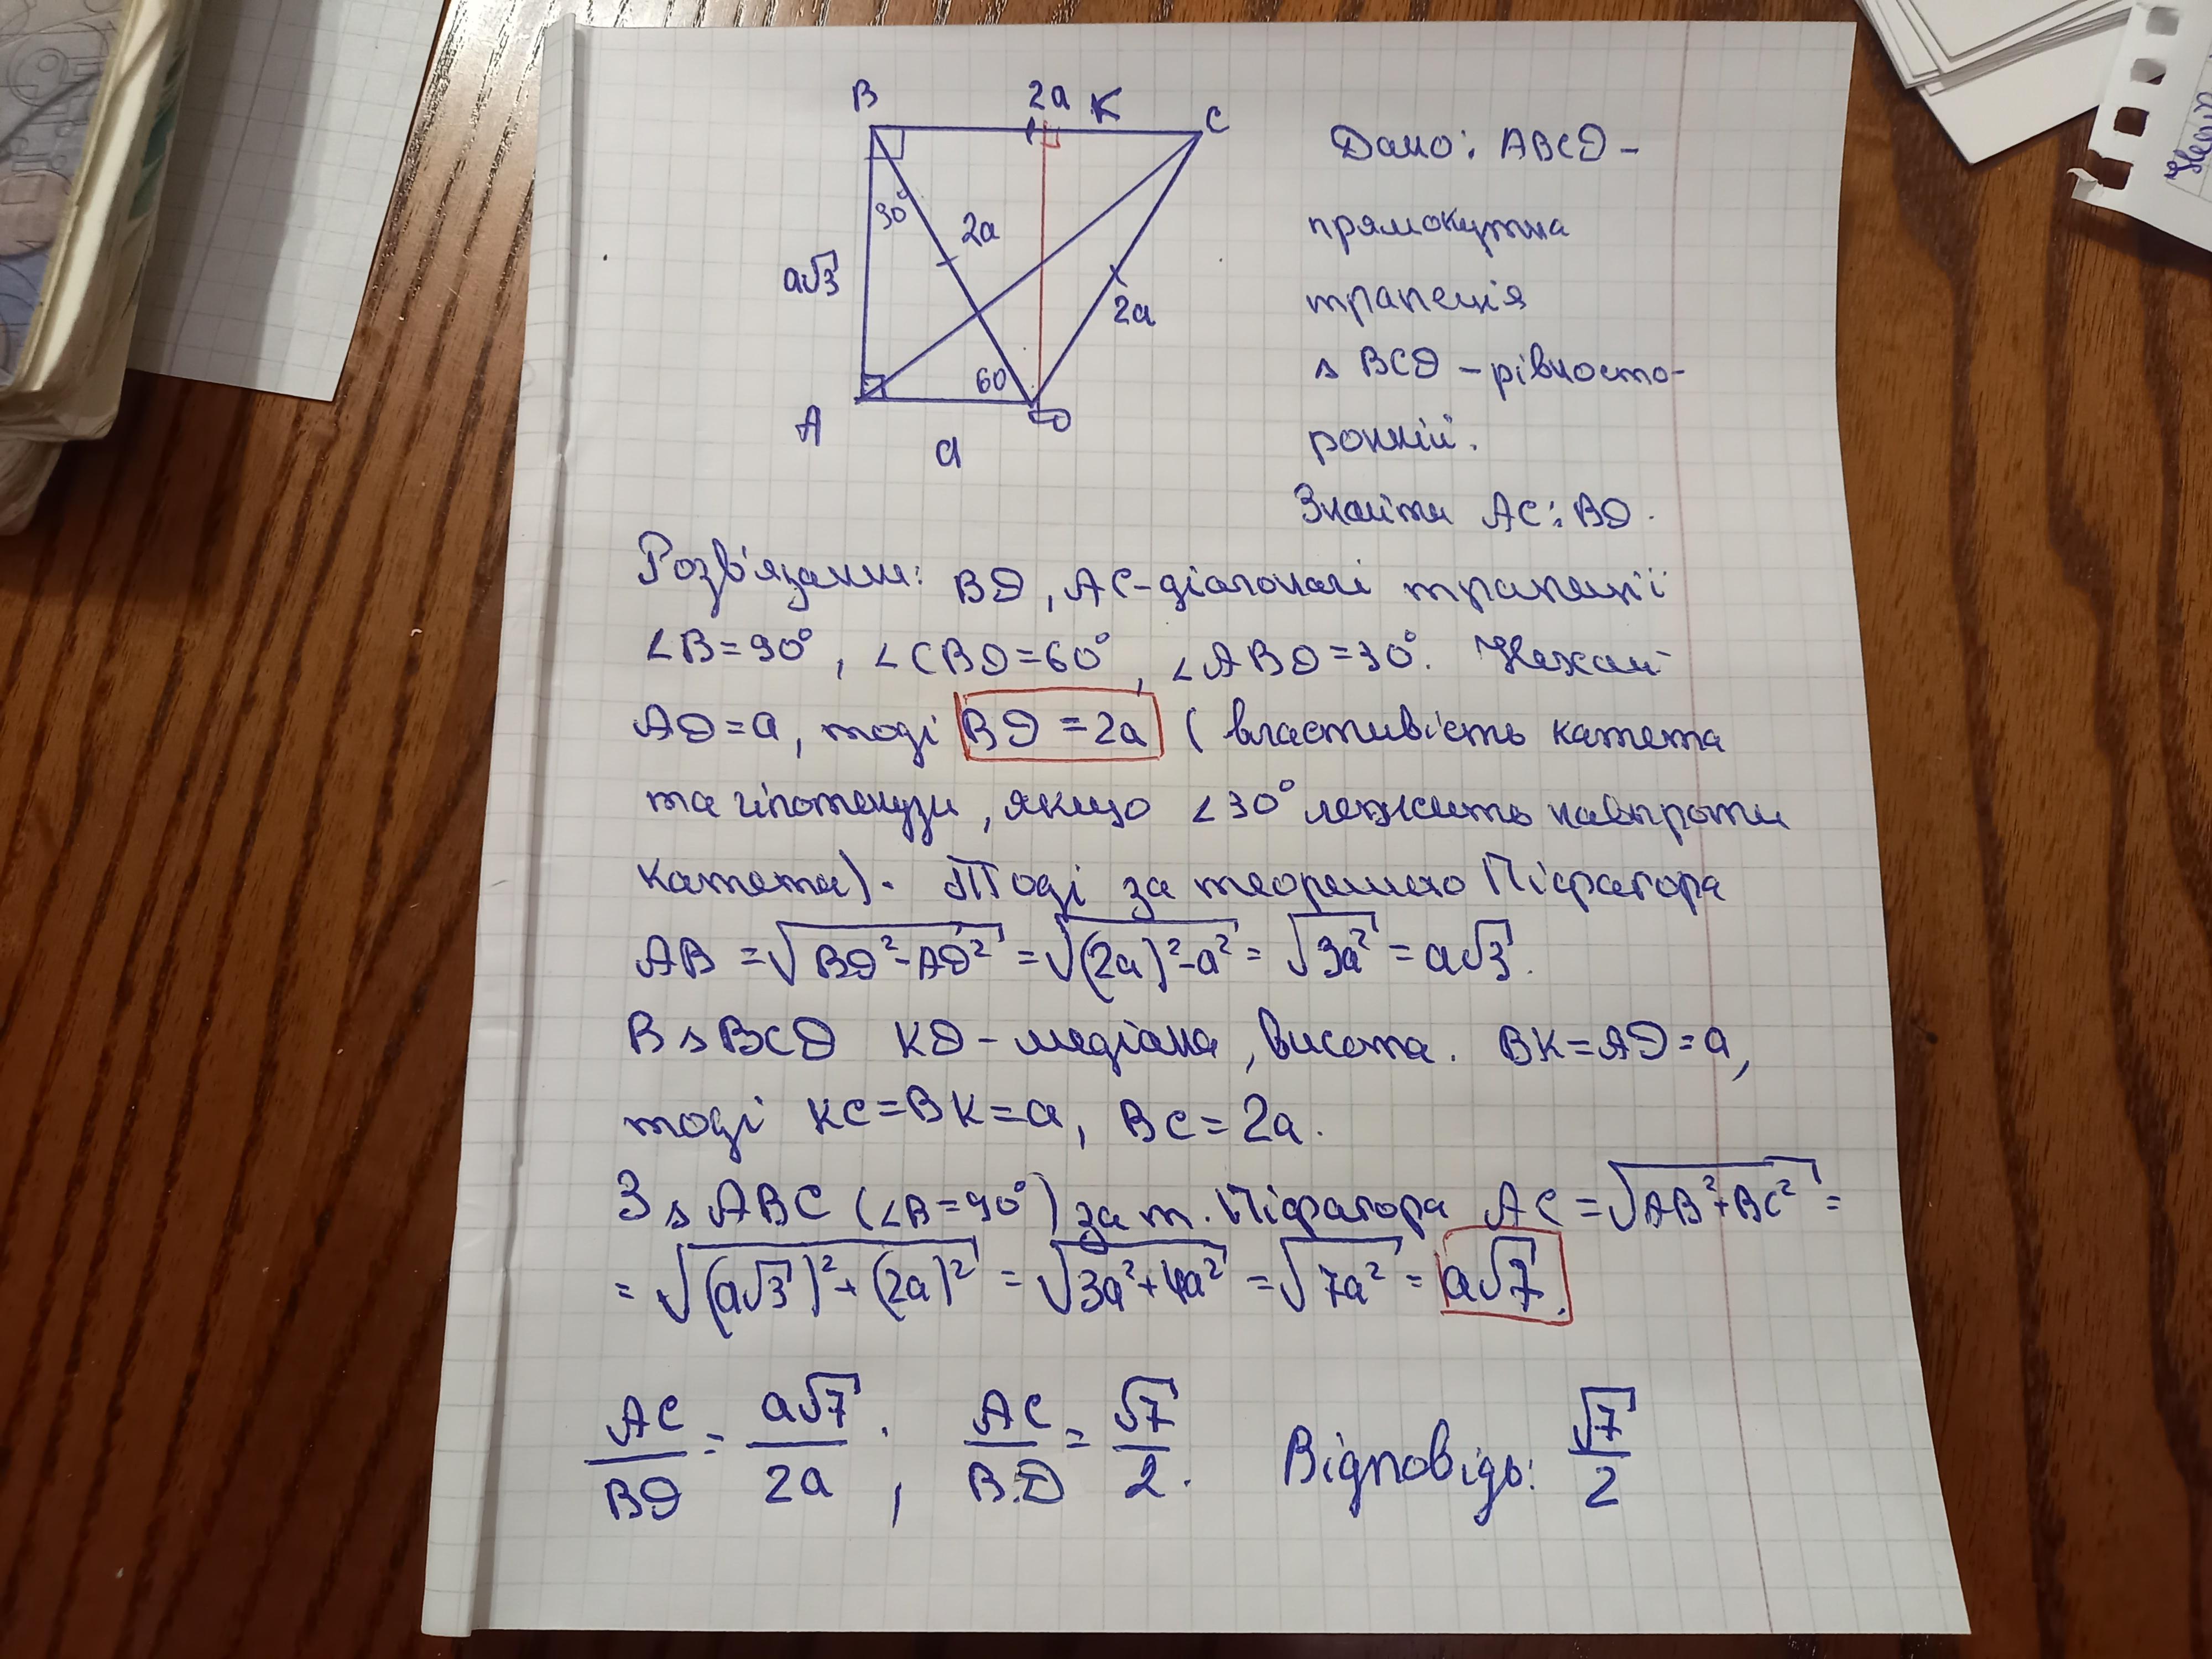 B 2a K C
30°
2a
a√3
2a
60
A D
a
Дано: ABCD -
прямокутна
трапеція
△ BCD - рівносто-
ронній.
Знайти AC:BD.
Розв'язання: BD, AC - діагоналі трапеції
∠B=90°, ∠CBD=60°, ∠ABD=30°. Нехай
AD=a, тоді BD=2a (властивість катета
та гіпотенузи, якщо ∠30° лежить навпроти
катета). Тоді за теоремою Піфагора
AB = √(BD²-AD²) = √((2a)²-a²) = √(3a²) = a√3.
В △BCD KD - медіана, висота. BK=AD=a,
тоді KC=BK=a, BC=2a.
З △ABC (∠B=90°) за т. Піфагора AC = √(AB²+BC²) =
= √((a√3)²+(2a)²) = √(3a²+4a²) = √(7a²) = a√7.
AC/BD = a√7/2a, AC/BD = √7/2. Відповідь: √7/2